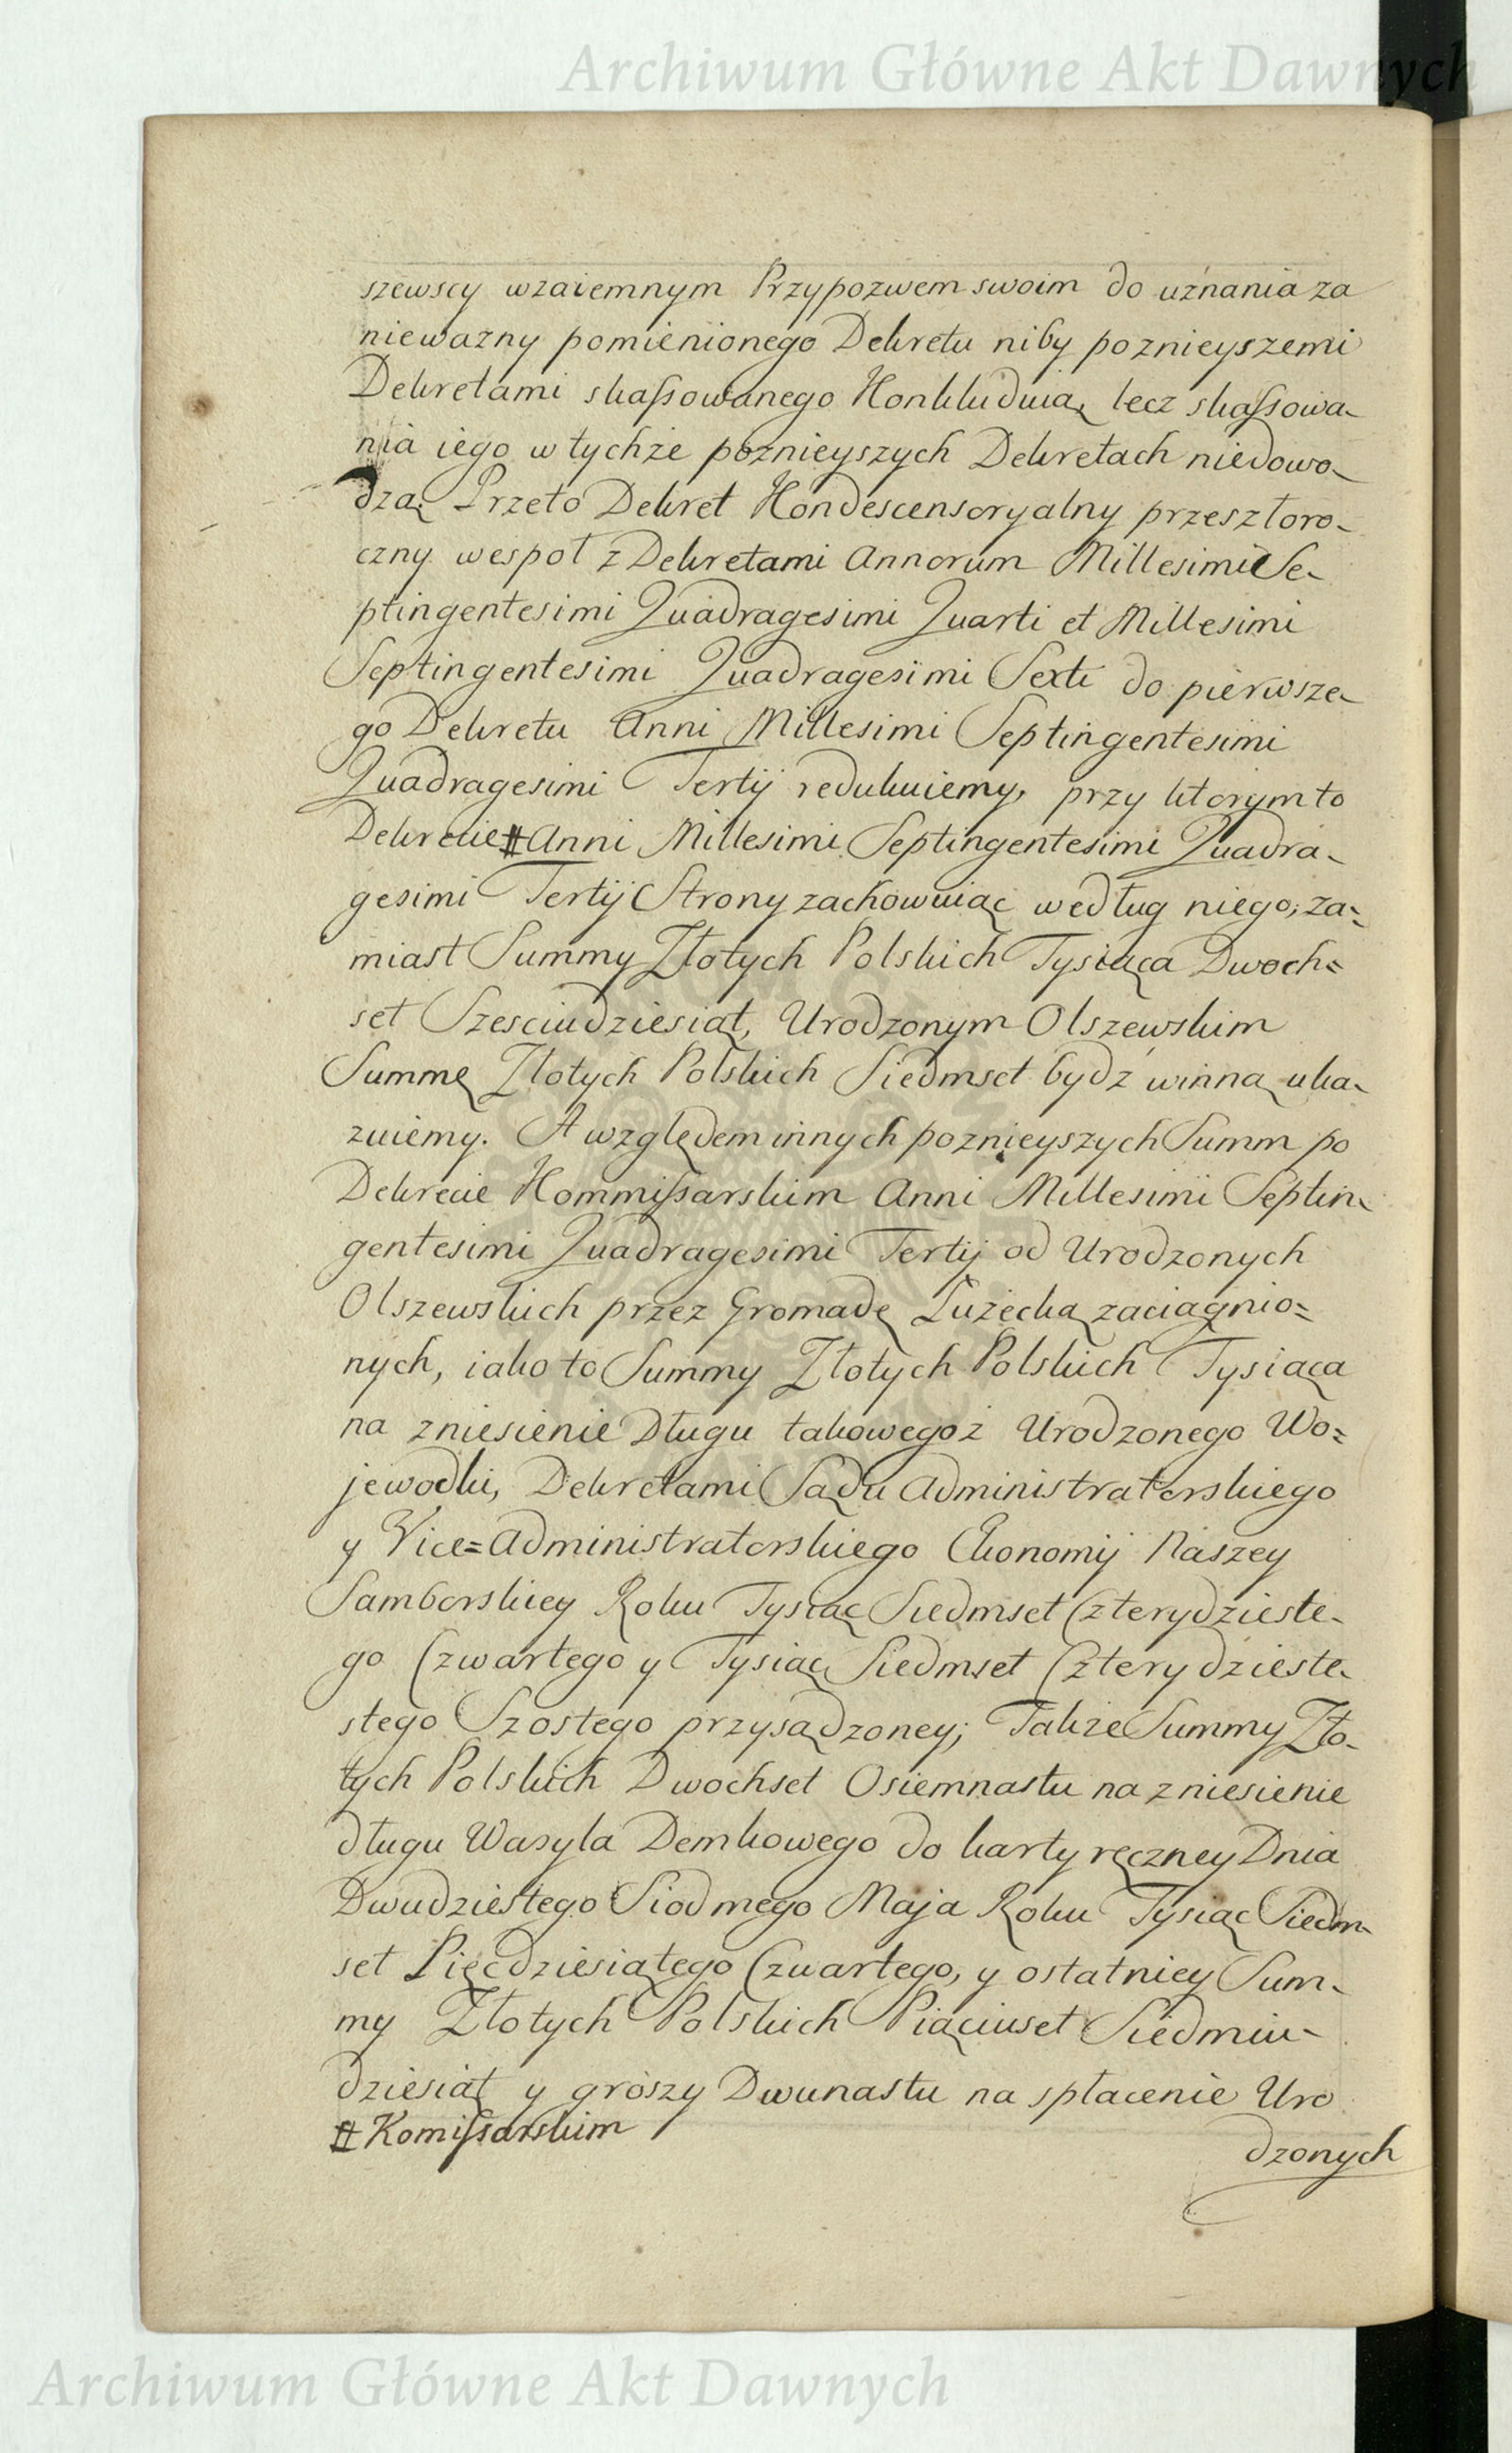 Archiwum Główne Akt Dawnych
szewscy wzaiemnym Przypozwem swoim do uznania za
niewazny pomienionego Dekretu niby poznieyszemi
Dekretami skassowanego Konkluduią, lecz skassowa-
nia iego w tychże poznieyszych Dekretach niedowo-
dzą; Przeto Dekret Kondescensoryalny przeszłoro-
czny wespoł z Dekretami Annorum Millesimi Se-
ptingentesimi Quadragesimi Quarti et Millesimi
Septingentesimi Quadragesimi Sexti do pierwsze-
go Dekretu Anni Millesimi Septingentesimi
Quadragesimi Tertij redukuiemy, przy ktorym to
Dekrecie # Anni Millesimi Septingentesimi Quadra-
gesimi Tertij Strony zachowuiąc według niego, za=
miast Summy Złotych Polskich Tysiąca Dwoch=
set Szesciudziesiąt, Urodzonym Olszewskim
Summę Złotych Polskich Siedmset bydź winną uka-
zuiemy. A względem innych poznieyszych Summ po
Dekrecie Kommissarskim Anni Millesimi Septin-
gentesimi Quadragesimi Tertij od Urodzonych
Olszewskich przez Gromadę Łużecką zaciągnio=
nych, iako to Summy Złotych Polskich Tysiąca
na zniesienie Długu takowegoż Urodzonego Wo=
jewodki, Dekretami Sądu Administratorskiego
y Vice=Administratorskiego Ekonomij Naszey
Samborskiey Roku Tysiąc Siedmset Czterydzieste-
go Czwartego y Tysiąc Siedmset Czterydzieste-
stego Szostego przysądzoney; Także Summy Zło-
tych Polskich Dwochset Osiemnastu na zniesienie
długu Wasyla Demkowego do karty ręczney Dnia
Dwudziestego Siodmego Maja Roku Tysiąc Siedm-
set Pięcdziesiątego Czwartego, y ostatniey Sum-
my Złotych Polskich Piąciuset Siedmiu-
dziesiąt y groszy Dwunastu na spłacenie Uro
# Komissarskim
dzonych
Archiwum Główne Akt Dawnych